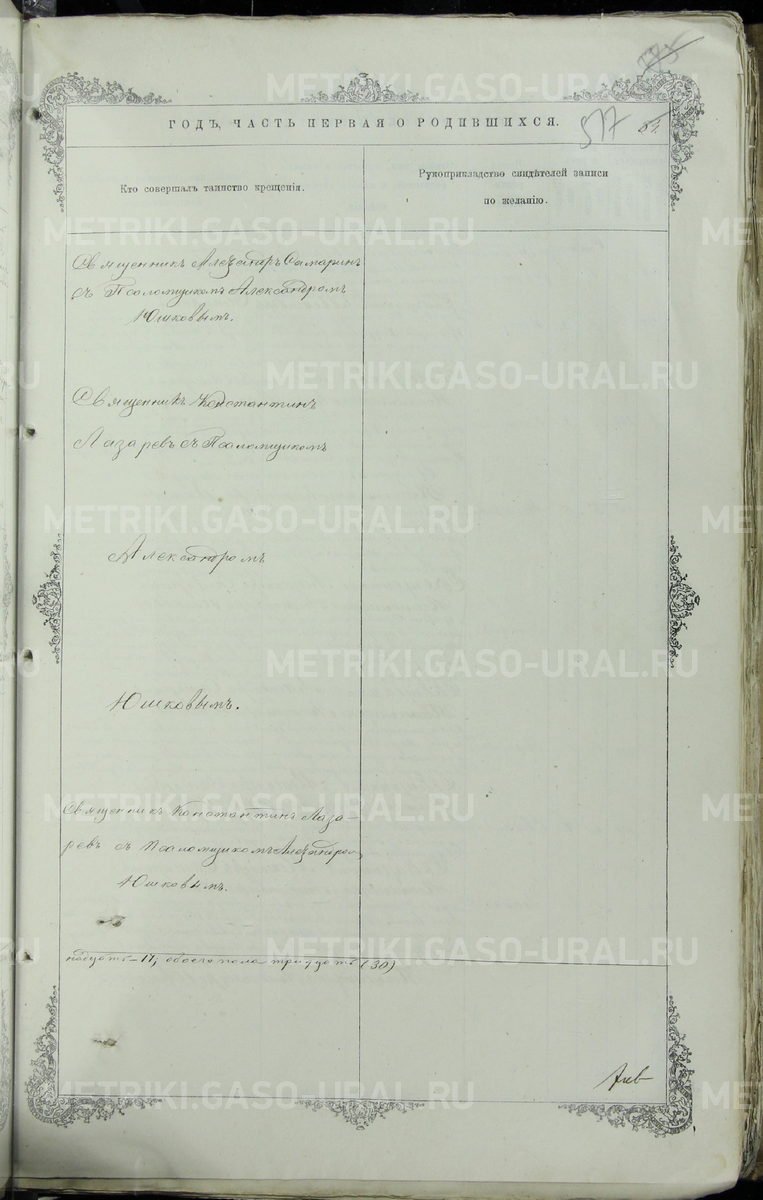 ГОДЪ, ЧАСТЬ ПЕРВАЯ О РОДИВШИХСЯ.
517
Кто совершалъ таинство крещенія.
Рукоприкладство свидѣтелей записи
по желанію.
Священникъ Александръ Самаринъ
съ Псаломщикомъ Александромъ
Юшковымъ.
Священникъ Константинъ
Лазаревъ съ Псаломщикомъ
Александромъ
Юшковымъ.
Священникъ Константинъ Лаза-
ревъ съ Псаломщикомъ Александром
Юшковымъ.
надцать - 17, обоего пола тридцать (30)
METRIKI.GASO-URAL.RU